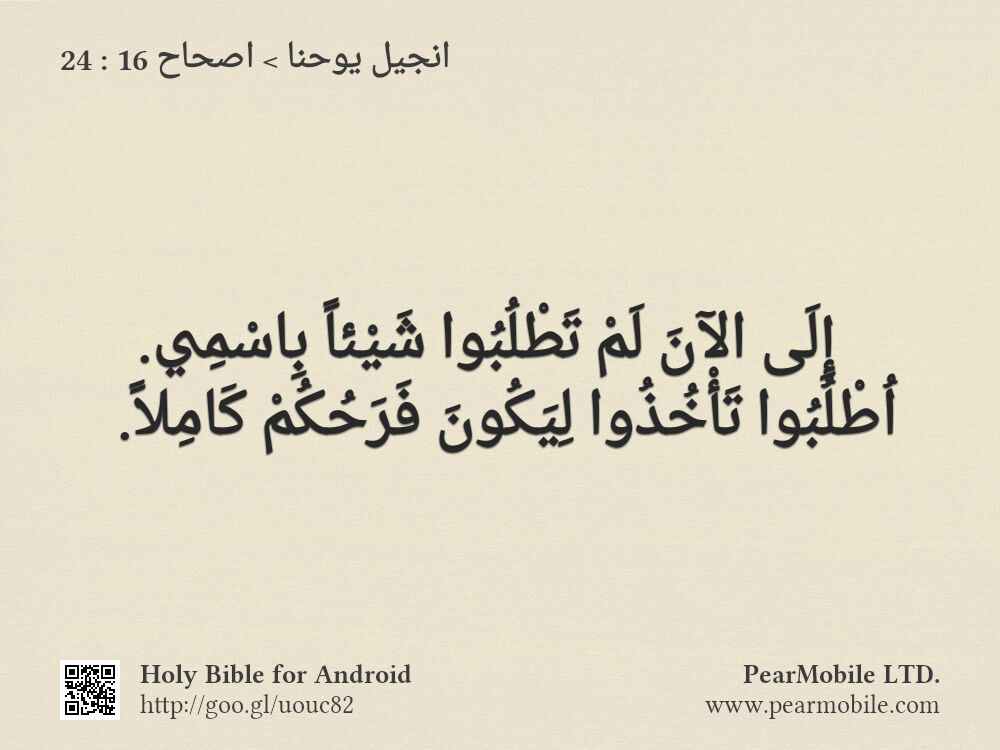 انجيل يوحنا > اصحاح 16 : 24
إِلَى الآنَ لَمْ تَطْلُبُوا شَيْئاً بِاسْمِي.
اُطْلُبُوا تَأْخُذُوا لِيَكُونَ فَرَحُكُمْ كَامِلاً.
Holy Bible for Android
http://goo.gl/uouc82
PearMobile LTD.
www.pearmobile.com